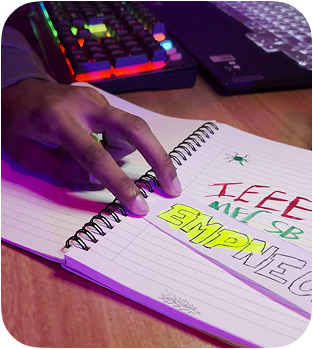 IEEE
MEC SB
EMPNEO